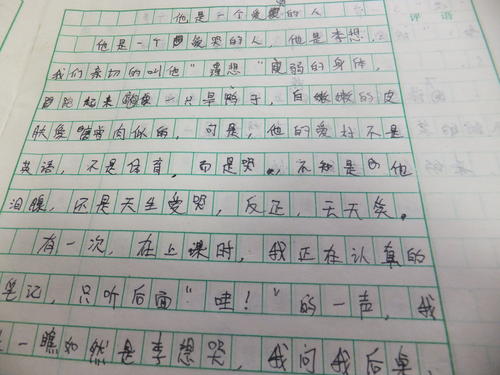 他是一个爱哭的人
评语
他是一个爱哭的人,他是李想,
我们亲切的叫他“理想”瘦弱的身体,
跑起来像一只旱鸭子,白嫩嫩的皮
肤象肉似的,可是,他的爱好不是
英语,不是体育,而是哭,不知是他
泪腺,还是天生爱哭,反正,天天哭。
有一次,在上课时,我正在认真的
笔记,只听后面“哇!”的一声,我
一瞧如然是李想哭,我问我后桌,